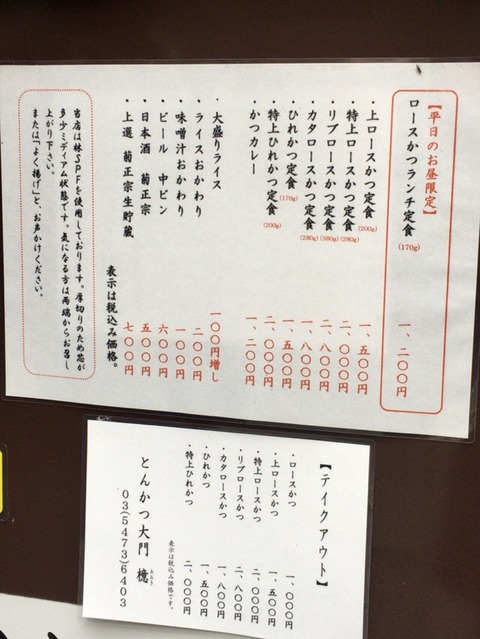 【平日のお昼限定】
ロースかつランチ定食(170g) 一、二〇〇円
・上ロースかつ定食(200g) 一、五〇〇円
・特上ロースかつ定食(280g) 二、〇〇〇円
・リブロースかつ定食(380g) 二、八〇〇円
・カタロースかつ定食(280g) 一、八〇〇円
・ひれかつ定食(170g) 一、五〇〇円
・特上ひれかつ定食(200g) 二、〇〇〇円
・かつカレー 一、二〇〇円
・大盛りライス 一〇〇円増し
・ライスおかわり 二〇〇円
・味噌汁おかわり 一〇〇円
・ビール 中ビン 六〇〇円
・日本酒 菊正宗 五〇〇円
・上選 菊正宗生貯蔵 七〇〇円
表示は税込み価格。
当店は林SPFを使用しております。厚切りのため芯が
多少ミディアム状態です。気になる方は両端からお召し
上がり下さい。
または「よく揚げ」と、お声かけください。
【テイクアウト】
・ロースかつ 一、〇〇〇円
・上ロースかつ 一、五〇〇円
・特上ロースかつ 二、〇〇〇円
・リブロースかつ 二、八〇〇円
・カタロースかつ 一、八〇〇円
・ひれかつ 一、五〇〇円
・特上ひれかつ 二、〇〇〇円
表示は税込み価格です。
とんかつ大門 檍
あおき
03(5473)6403